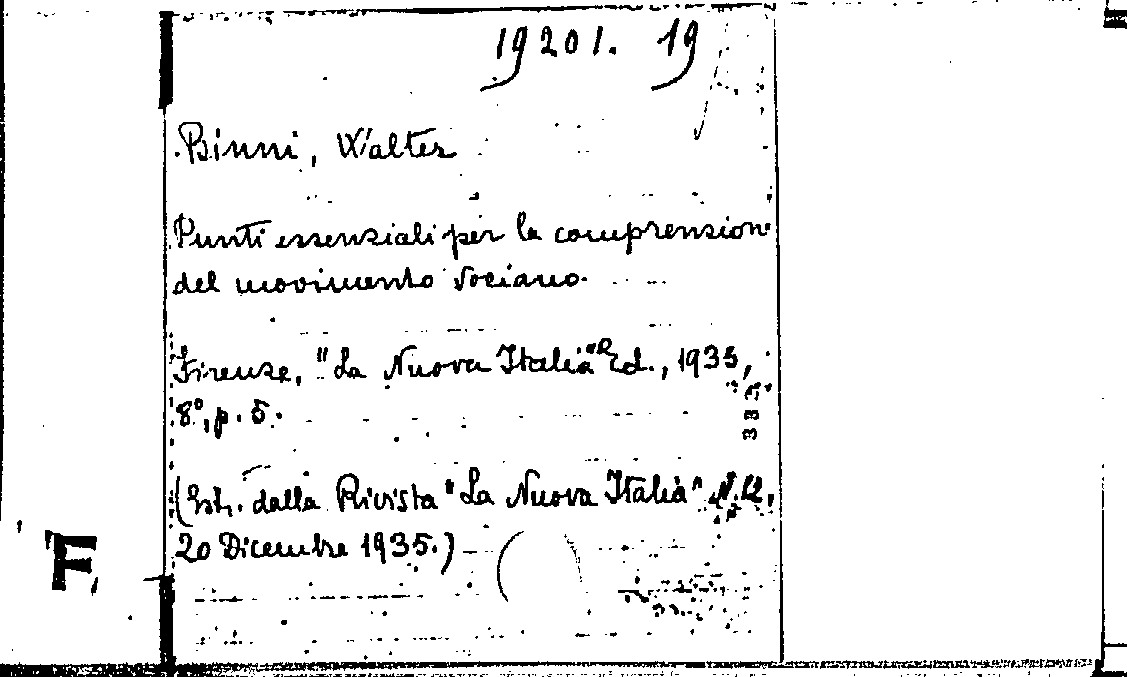 19201. 19
Binni, Walter
Punti essenziali per la comprensione
del movimento vociano.
Firenze, "La Nuova Italia" Ed., 1935,
8°, p. 5.
(Estr. dalla Rivista "La Nuova Italia" N. 12,
20 Dicembre 1935.)